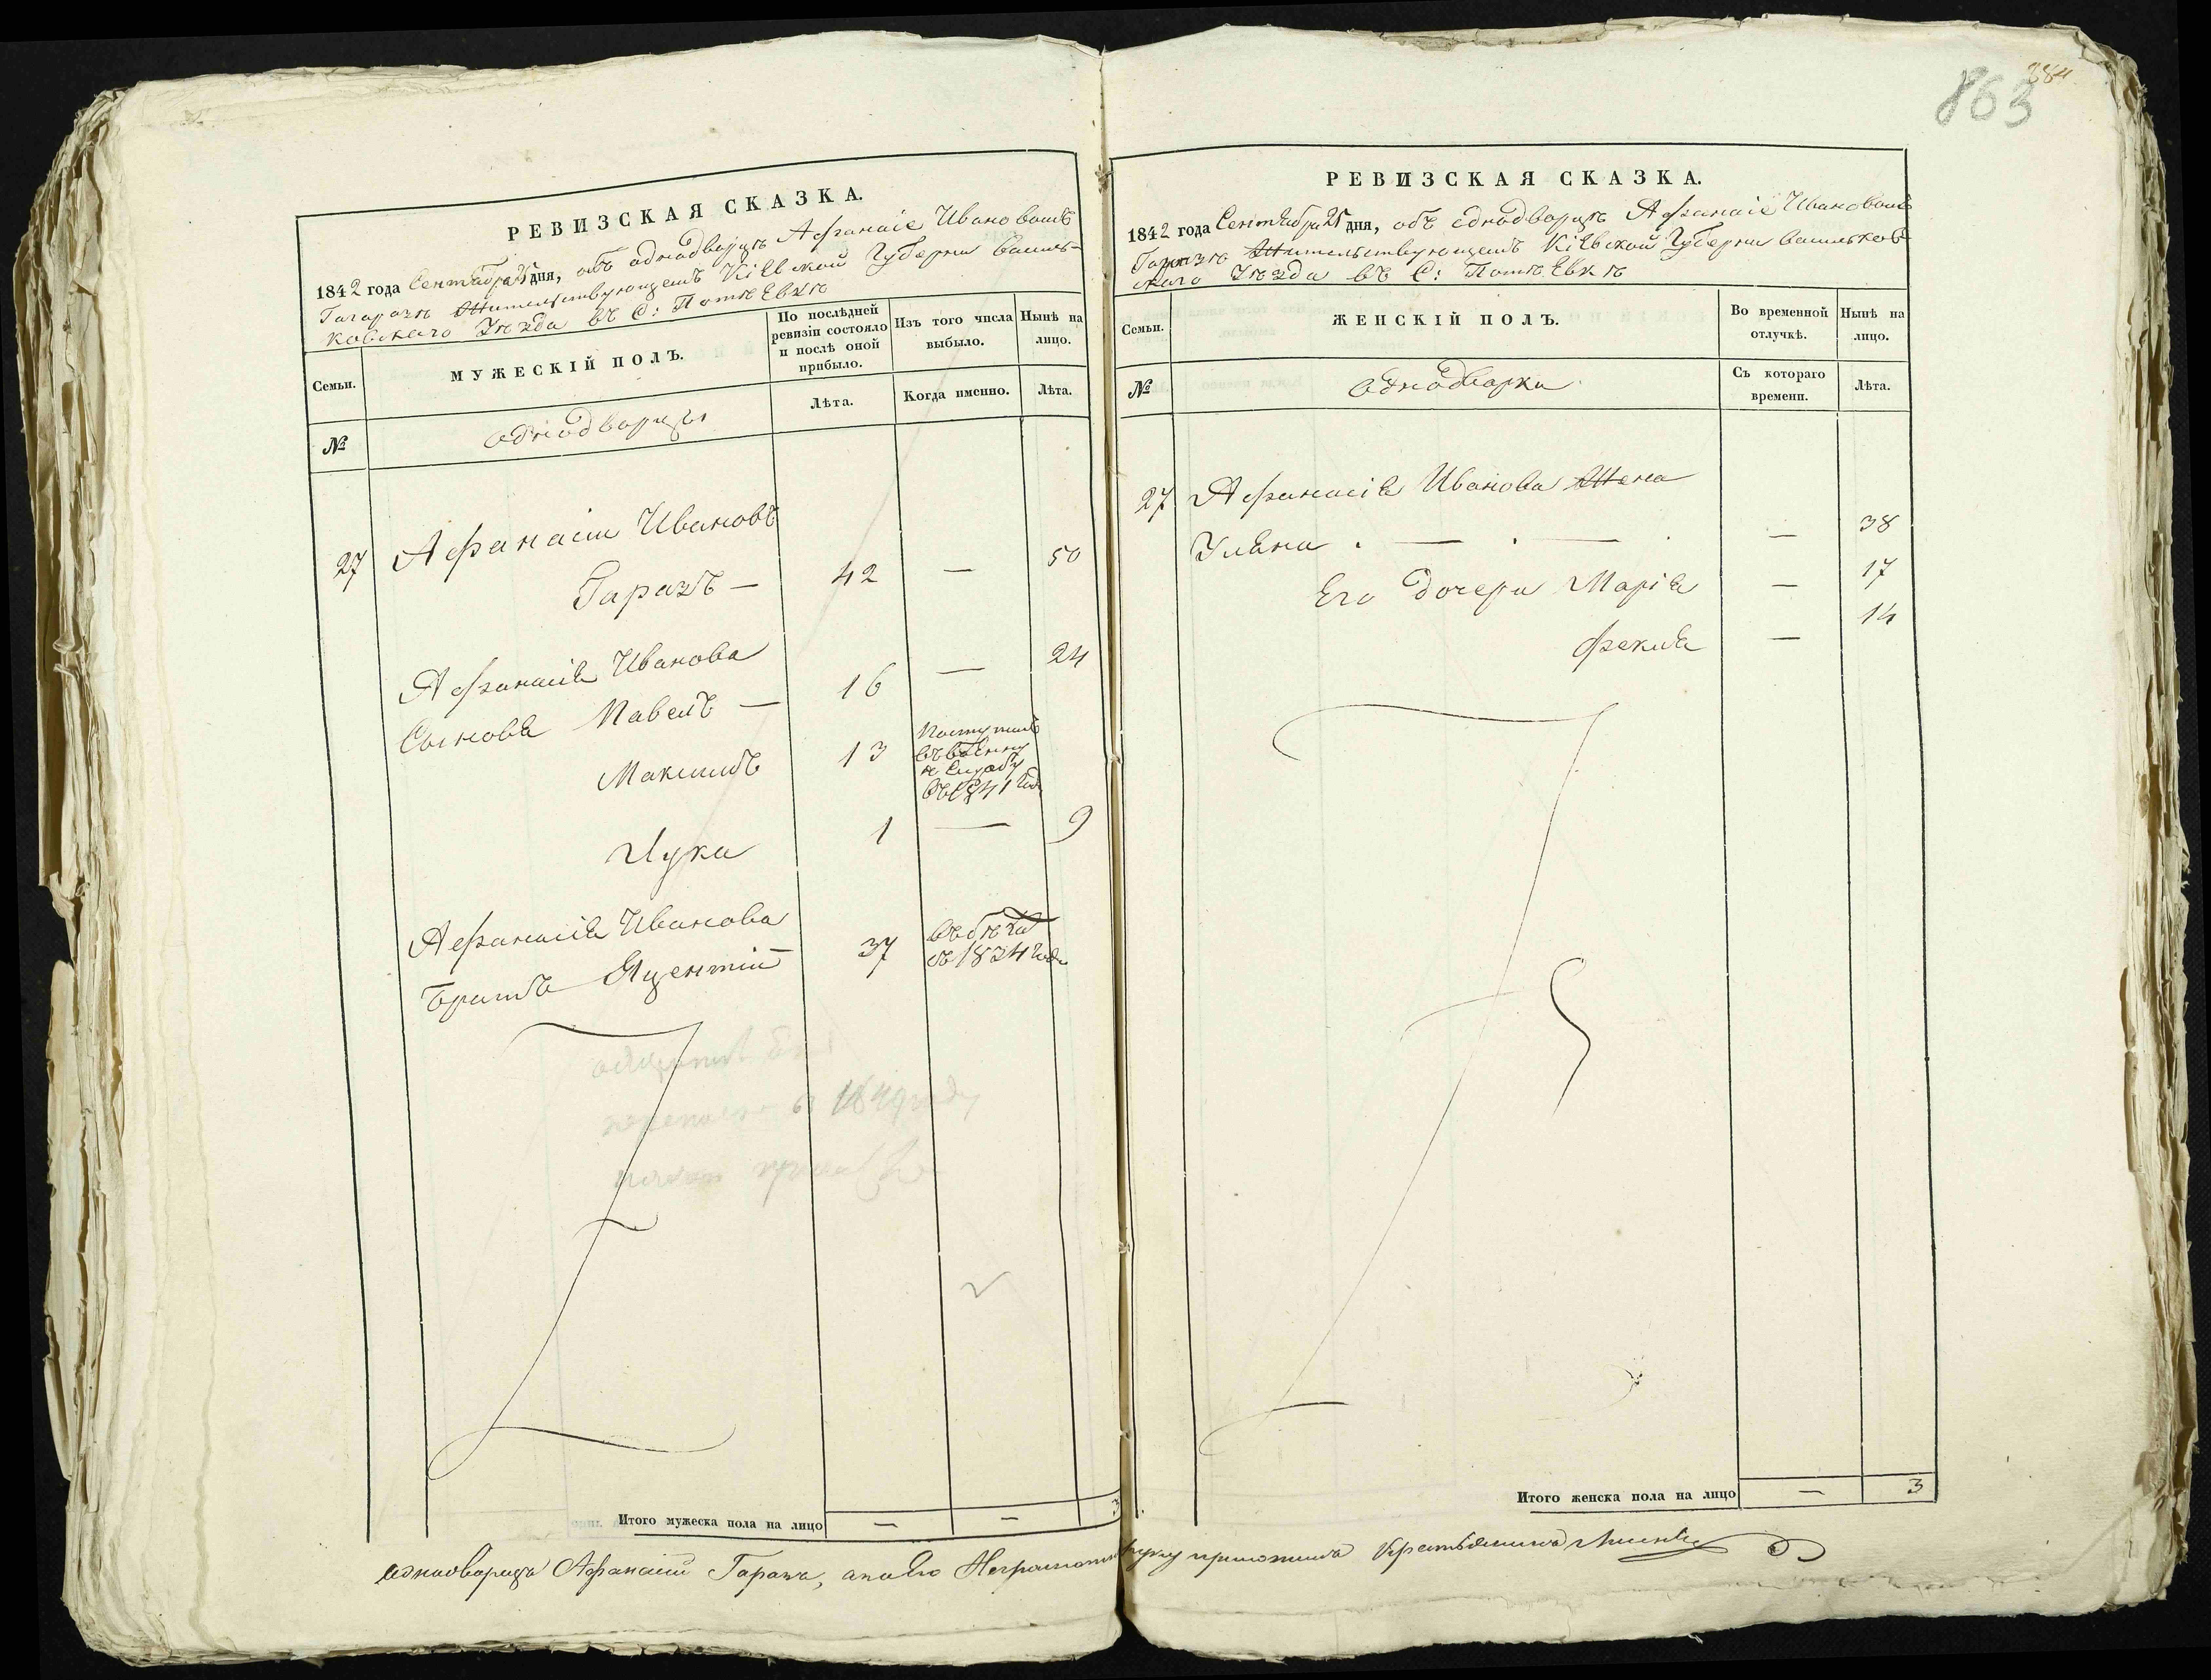 863
РЕВИЗСКАЯ СКАЗКА.
1842 года Сентября 25 дня, объ однодворцѣ Афанасіе Ивановомъ
жительствующемъ Кіевской Губерни Василь-
ковскаго уѣзда въ С:
Семьи.
МУЖЕСКІЙ ПОЛЪ.
По послѣдней ревизіи состояло и послѣ оной прибыло.
Изъ того числа выбыло.
Нынѣ на лицо.
№
однодворцы
Лѣта.
Когда именно.
Лѣта.
27 Афанасіи Ивановъ
Гаразъ — 42 — 50
Афанасія Иванова
Сыновя Павелъ — 16 — 24
Максимъ 13 Поступилъ
въ военну
ю службу
въ 1841 годе
Лука 1 — 9
Афанасія Иванова
братъ Яцентій 37 въ бѣга
съ 1834 года
Итого мужеска пола на лицо — — 3
РЕВИЗСКАЯ СКАЗКА.
1842 года Сентября 25 дня, объ однодворцѣ Афанасіе Ивановомъ
Гаразѣ жительствующемъ Кіевской Губерни Васильков-
скаго уѣзда въ С:
Семьи.
ЖЕНСКІЙ ПОЛЪ.
Во временной отлучкѣ.
Нынѣ на лицо.
№
однодворки
Съ котораго времени.
Лѣта.
27 Афанасія Иванова Жена
Уляна — — — 38
Его дочери Марія — 17
Фекла — 14
Итого женска пола на лицо — 3
однодворецъ Афанасіи Гаразъ, а по его руку приложилъ